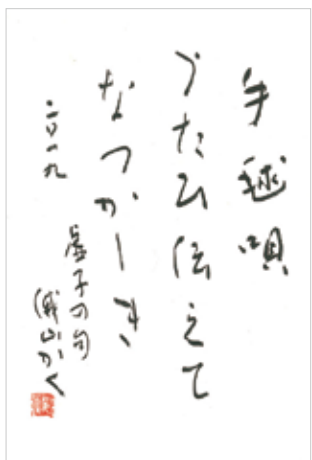 手毬唄
うたひ伝えて
なつかしき
二〇一九
虚子の句
かく